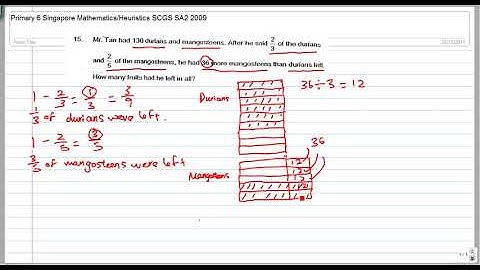 Primary 6 Singapore Mathematics/Heuristics SCGS SA2 2009
15. Mr. Tan had 130 durians and mangosteens. After he sold 2/3 of the durians
and 2/5 of the mangosteens, he had 36 more mangosteens than durians left.
How many fruits had he left in all?
1 - 2/3 = 1/3 = 3/9
1/3 of durians were left.
1 - 2/5 = 3/5
3/5 of mangosteens were left
Durians
36 ÷ 3 = 12
36
Mangosteens
12
12
12
12